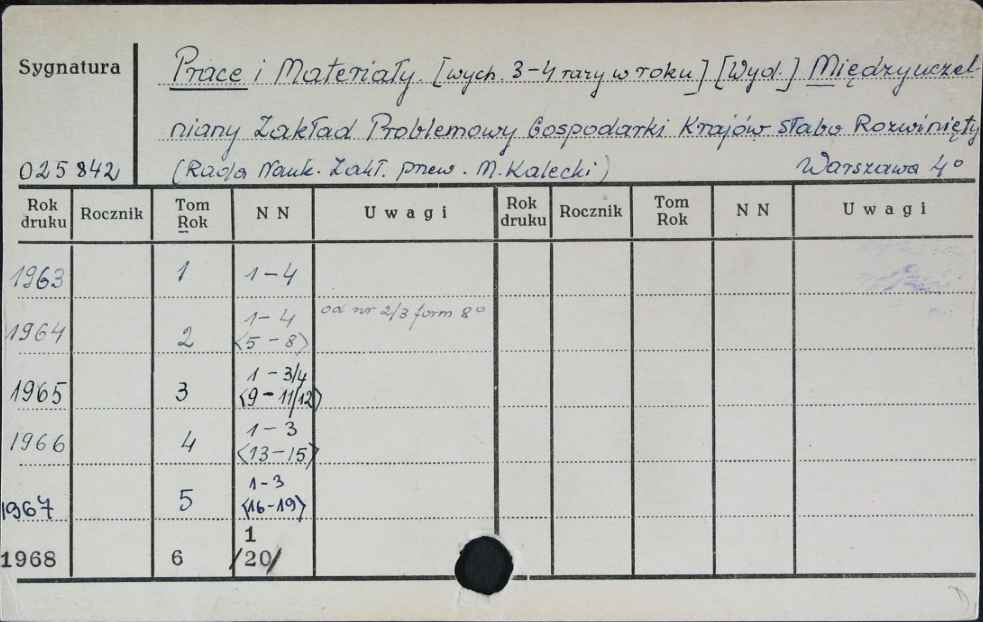 Sygnatura
Prace i Materiały. [wych. 3-4 razy w roku.] [Wyd.] Międzyuczel-
niany Zakład Problemowy Gospodarki Krajów słabo Rozwinięty
025842 (Rada Nauk. Zakł. przew. M. Kalecki) Warszawa 4°
Rok druku Rocznik Tom Rok N N Uwagi Rok druku Rocznik Tom Rok N N Uwagi
1963 1 1-4
1964 2 1-4 <5-8> od nr 2/3 form 8°
1965 3 1-3/4 <9-11/12>
1966 4 1-3 <13-15>
1967 5 1-3 <16-19>
1968 6 1 /20/